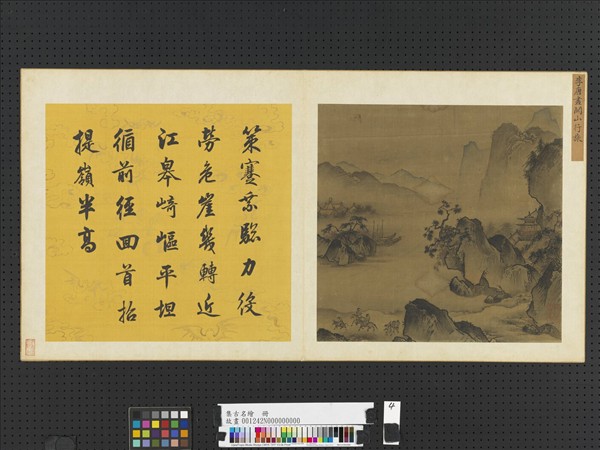 李唐畫關山行旅
策蹇乘驄力後
勞危崖幾轉近
江皋崎嶇平坦
循前徑回首招
提嶺半高
集古名繪 冊
故畫 001242N000000000
4